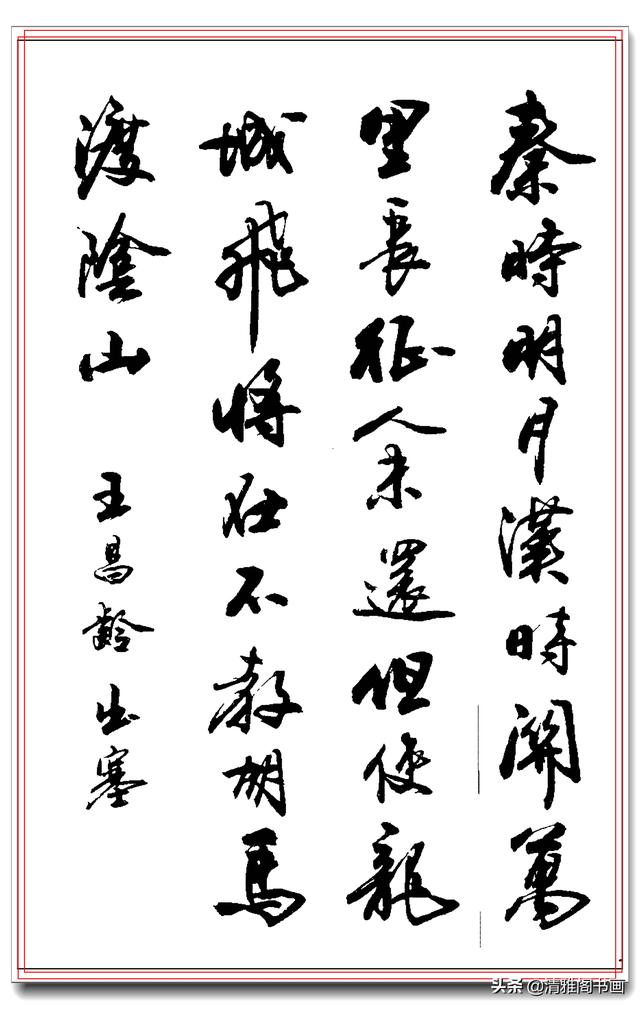 秦時明月漢時關萬
里長征人未還但使龍
城飛將在不教胡馬
渡陰山
王昌齡出塞
头条 @清雅阁书画